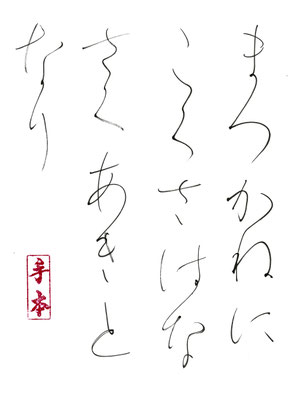 まつかねに
こくさはな
さくあきと
なり
手本